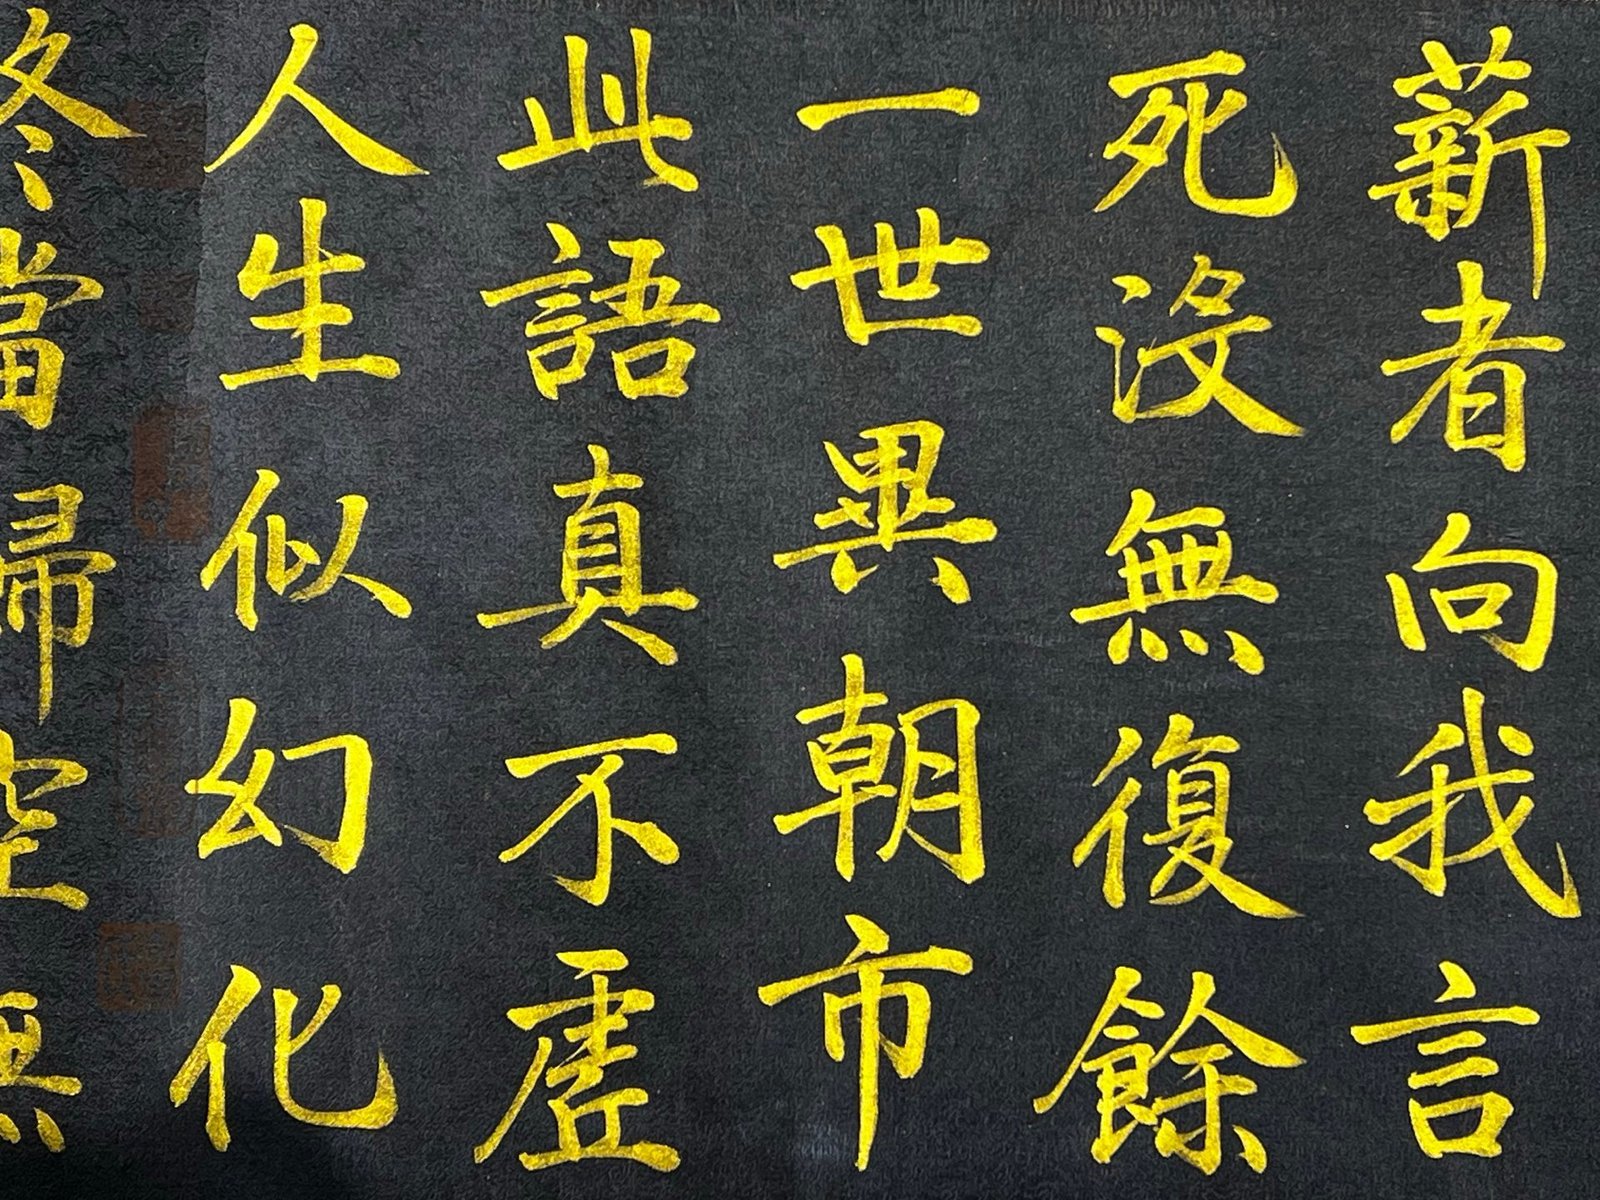 薪者向我言
死沒無復餘
一世異朝市
此語真不虛
人生似幻化
終當歸空無